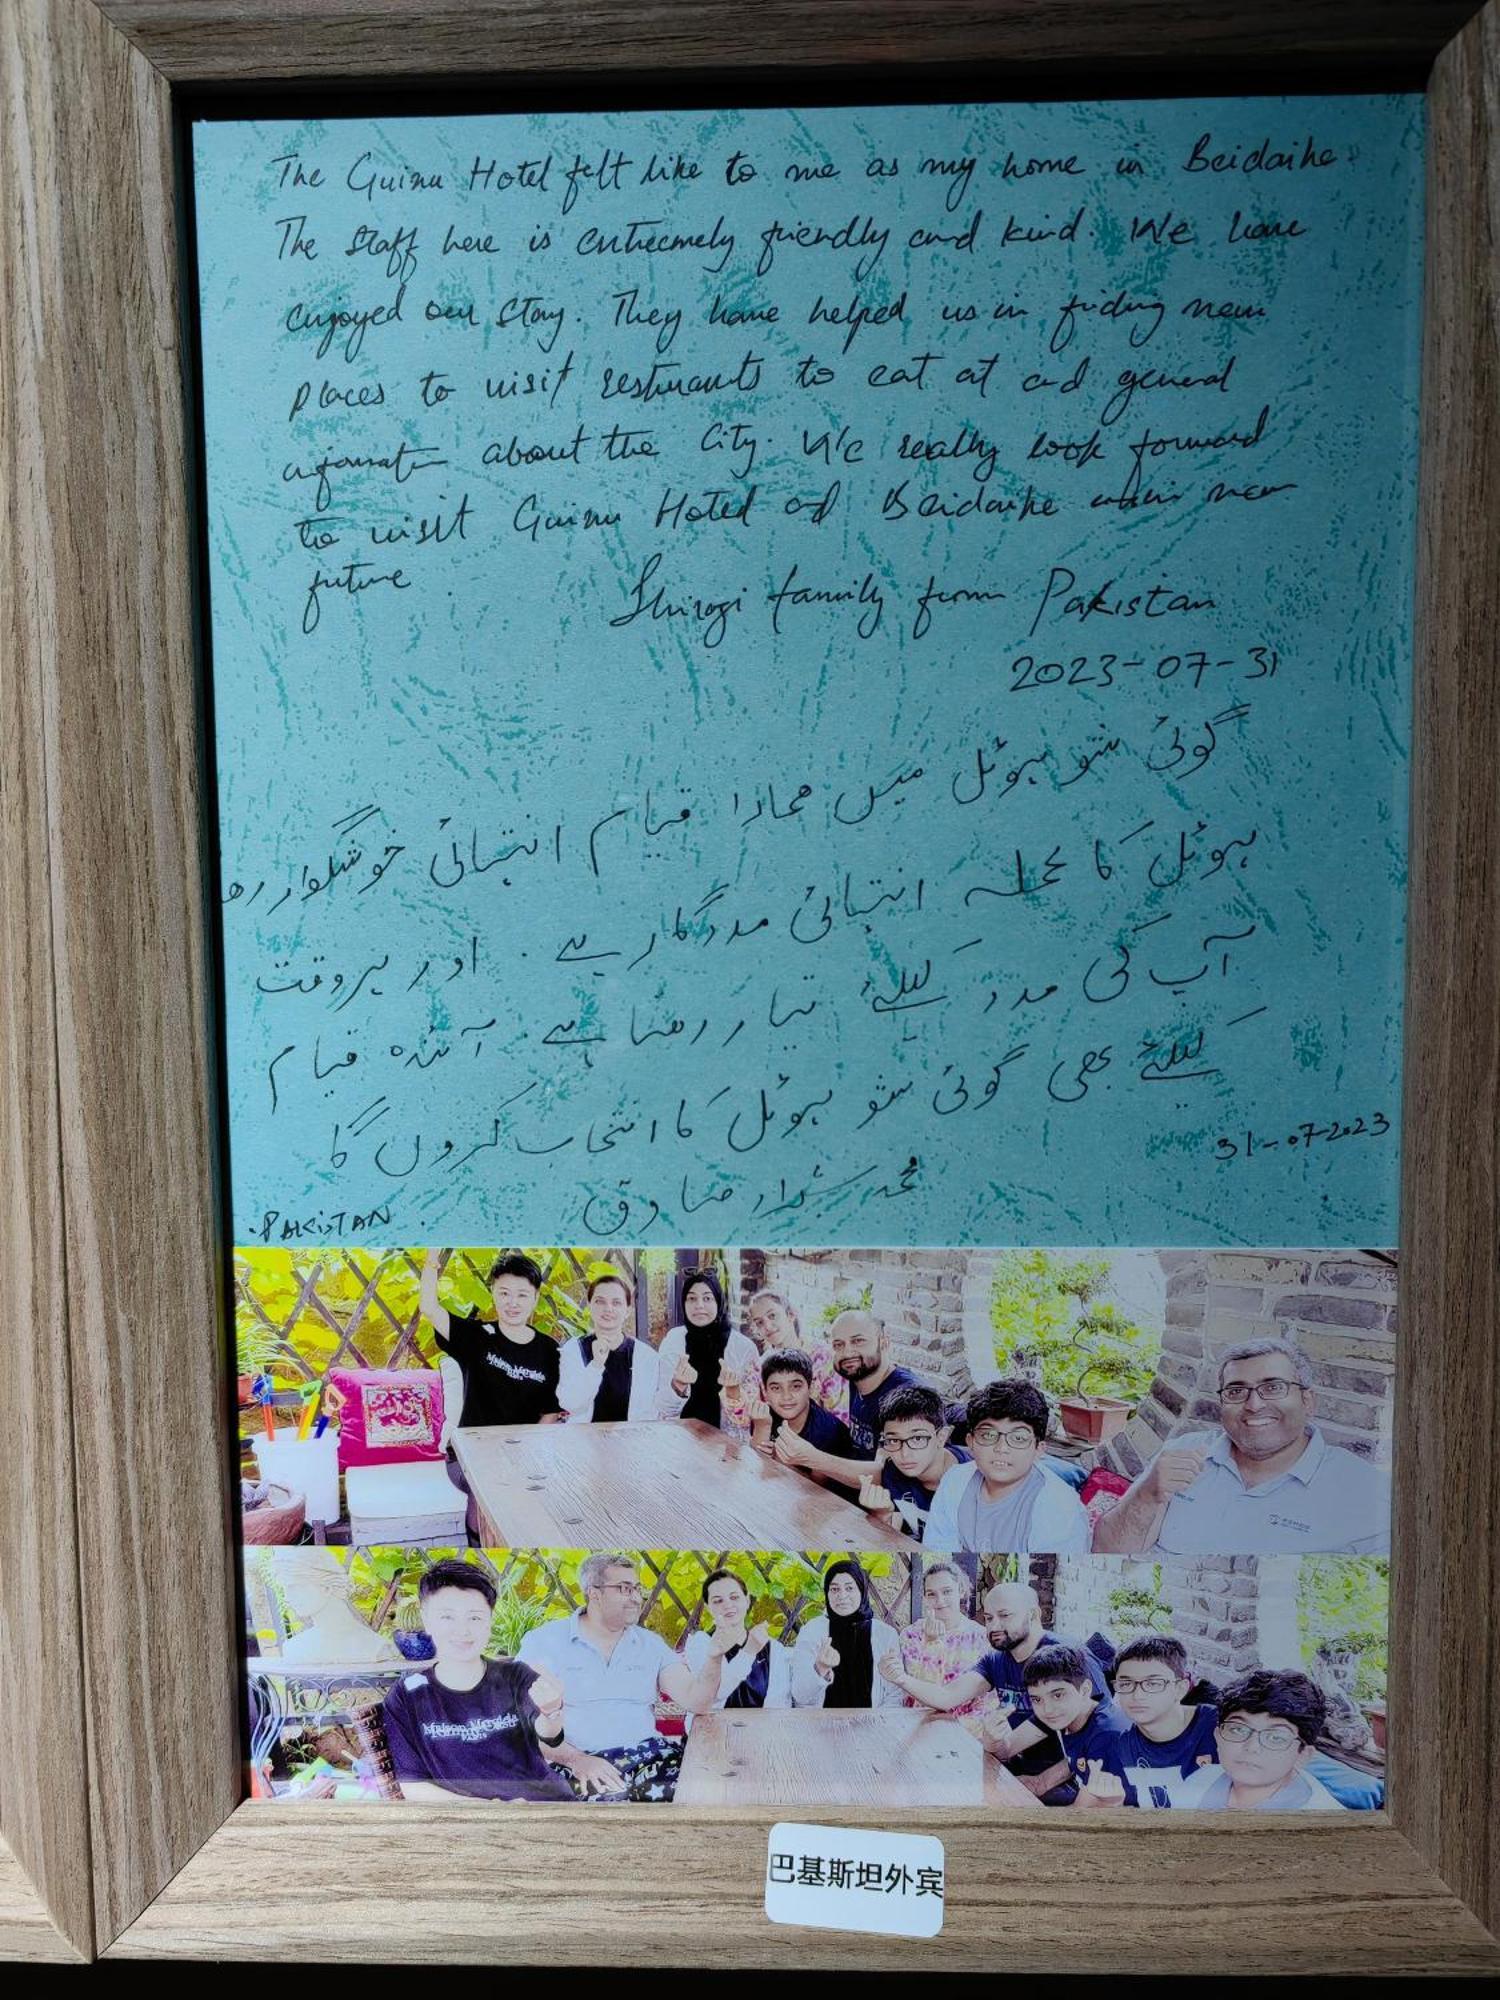 The Guinu Hotel felt like to me as my home in Beidaihe
The Staff here is extremely friendly and kind. We have
enjoyed our stay. They have helped us in finding new
places to visit resturants to eat at and general
information about the city. We really look forward
to visit Guinu Hotel and Beidaihe in near
future
family from Pakistan
2023-07-31
گوئی شو ہوٹل میں ھمارا قیام انتہائی خوشگوار رھا
ہوٹل کا عملہ انتہائی مددگار ہے. اور ہر وقت
آپ کی مدد کیلئے تیار رھتا ہے. آئندہ قیام
کیلئے بھی گوئی شو ہوٹل کا انتخاب کروں گا
31-07-2023
محمد صادق
PAKISTAN
巴基斯坦外宾